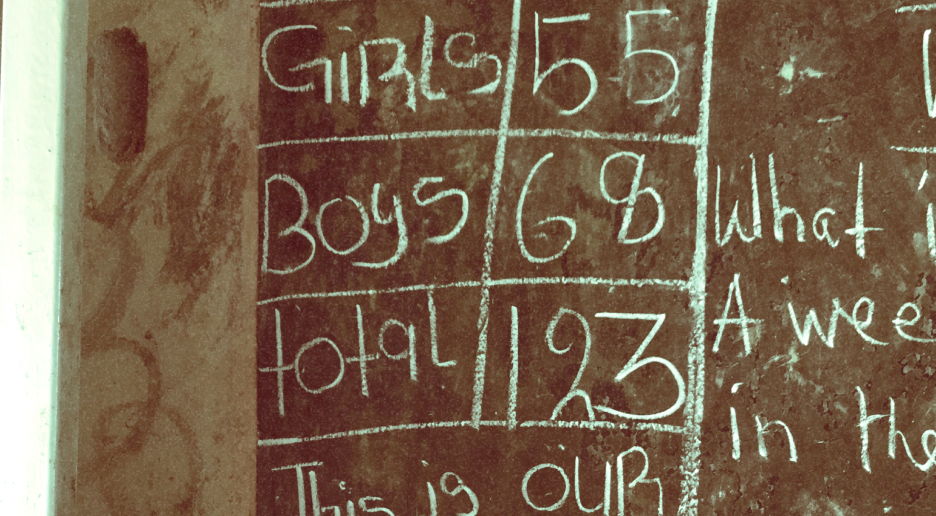 Girls 55
Boys 68
total 123
This is OUR
What
A wee
in the